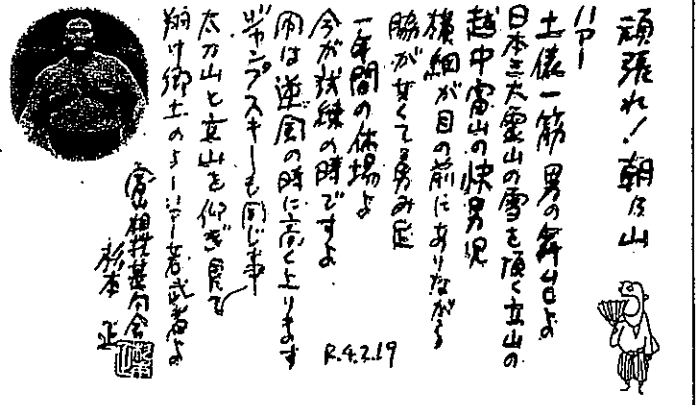 頑張れ！朝乃山
ハァー
土俵一筋 男の舞台よ
日本三大霊山の雪を頂く立山の
越中富山の快男児
横綱が目の前にありながら
脇が甘くて勇み足
一年間の休場よ
今が試練の時ですよ
凧は逆風の時に高く上ります
ジャンプスキーも同じ事
太刀山と立山を仰ぎ見て
翔け郷土のよーハァー若武者よ
富山相撲甚句会
杉本 正
R.4.2.19